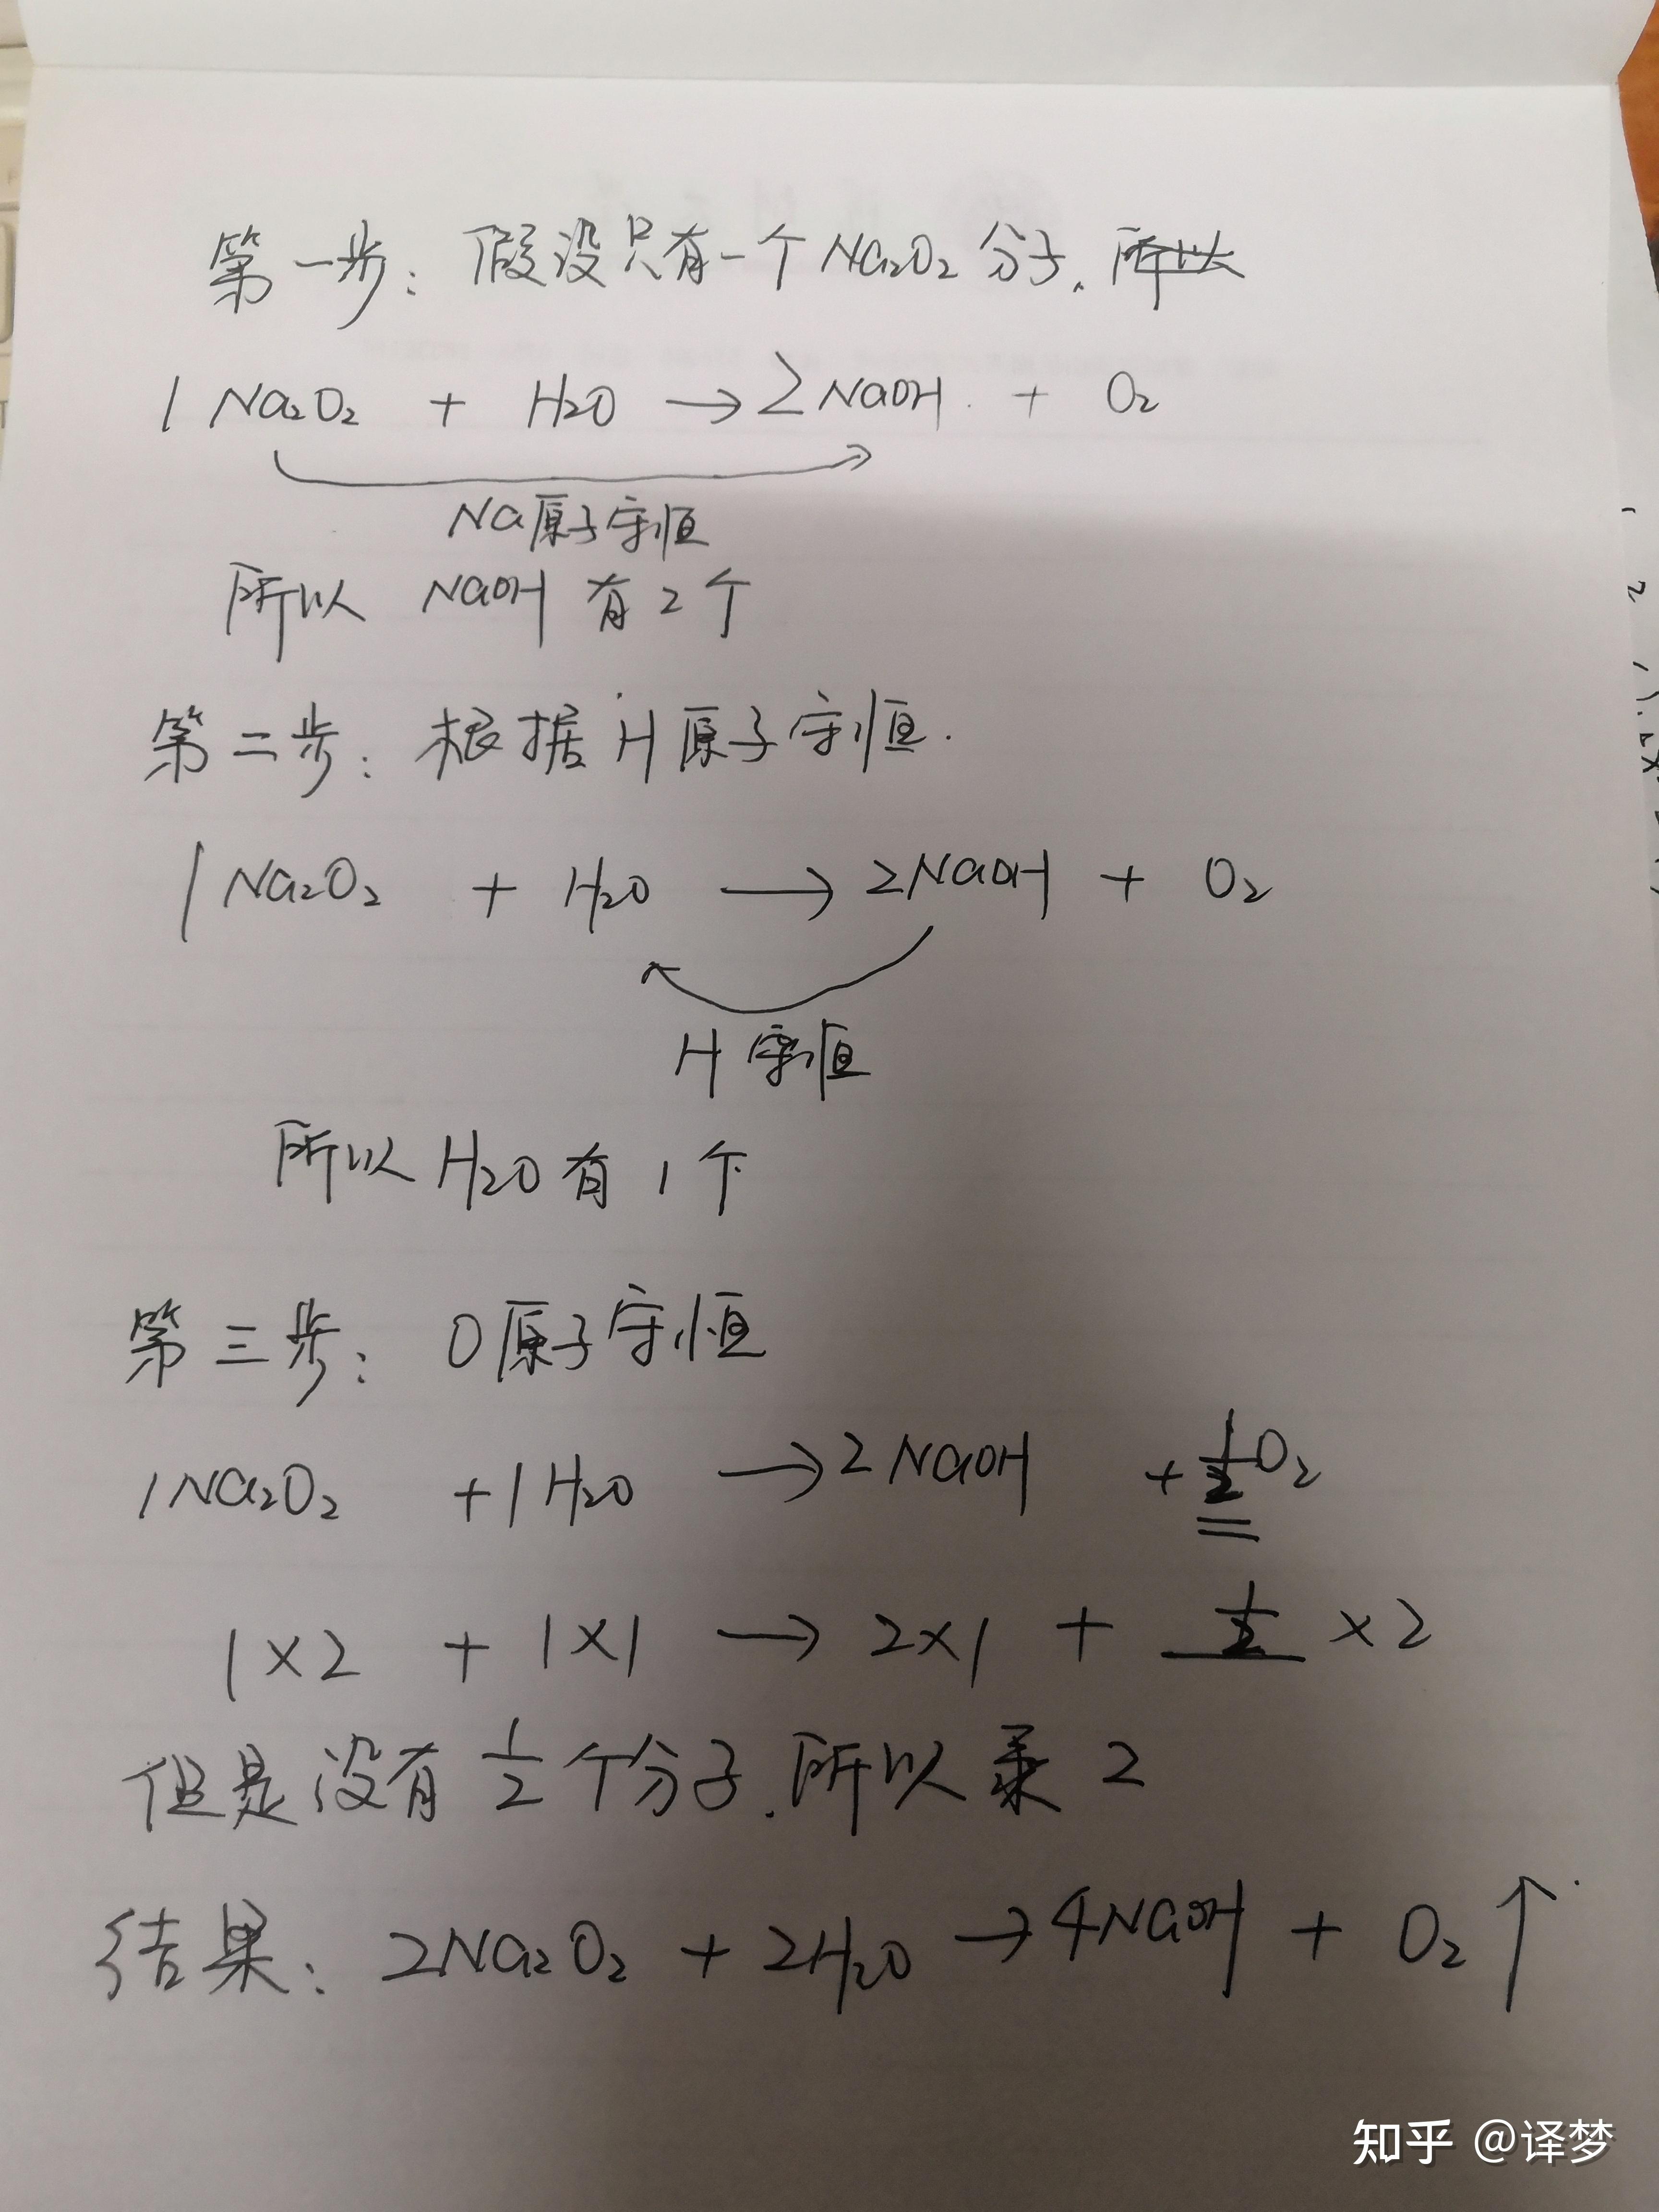 第一步：假设只有一个 Na₂O₂ 分子. 所以
1 Na₂O₂ + H₂O → 2 NaOH + O₂
Na原子守恒
所以 NaOH 有 2 个
第二步：根据 H 原子守恒.
1 Na₂O₂ + H₂O → 2NaOH + O₂
H 守恒
所以 H₂O 有 1 个
第三步：O 原子守恒
1 Na₂O₂ + 1 H₂O → 2 NaOH + 1/2 O₂
1×2 + 1×1 → 2×1 + 1/2 ×2
但是没有 1/2 个分子. 所以乘 2
结果：2Na₂O₂ + 2H₂O → 4NaOH + O₂↑
知乎 @译梦